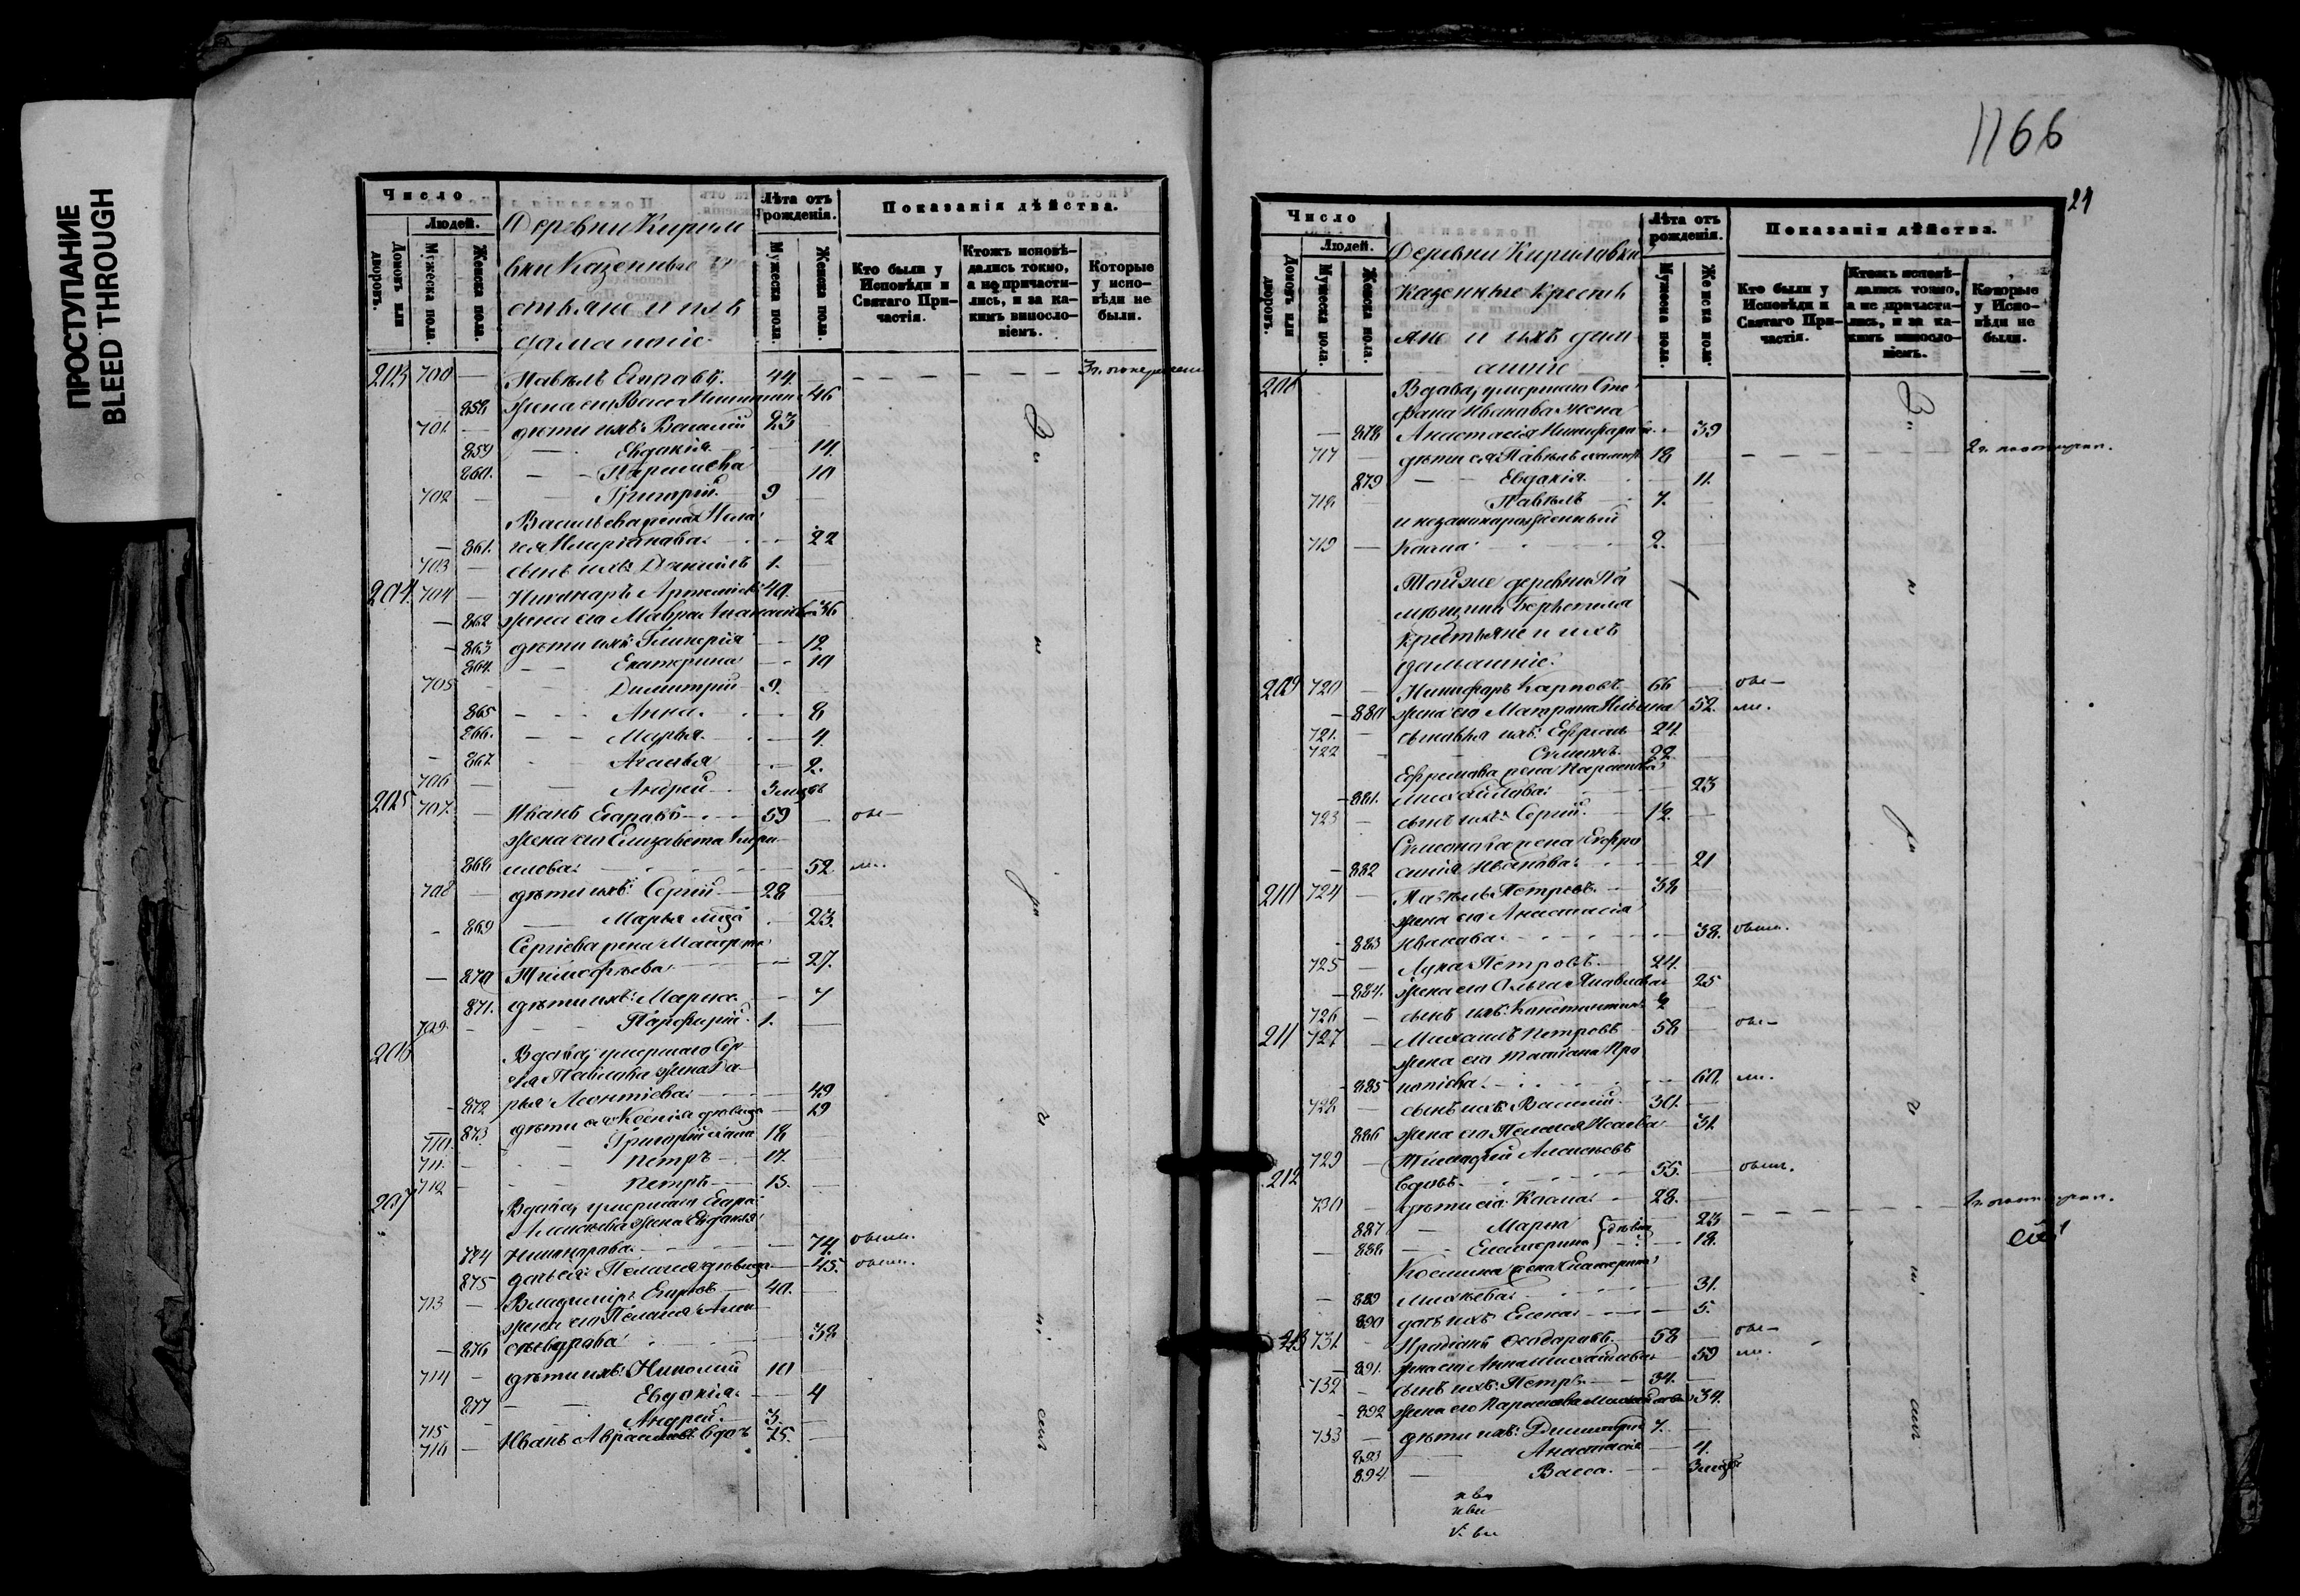 ПРОСТУПАНИЕ
BLEED THROUGH
Число
Людей.
Домовъ или дворовъ.
Мужеска пола.
Женска пола.
Деревни Кирил
Лѣта отъ рожденія.
Мужеска пола.
Женска пола.
Показанія дѣйства.
Кто были у Исповѣди и Святаго Причастія.
Ктожъ исповѣдались токмо, а не причастились, и за какимъ винословіемъ.
Которые у исповѣди не были.
вки Казенные Кре
стьяне и ихъ
домашніе
203 700 — Павелъ Егоровъ. 44.
858 жена его Васса 46
701. — дѣти ихъ: Василій 23
859 Евдокія 14.
860. 10
702 Григорій. 9
Васильева жена Пела
861. гея Иларіонова 22
703 — сынъ ихъ Даніилъ 1.
204. 704 — Никаноръ Артемьевъ 40.
862 жена его Мавра 36
863 дѣти ихъ: Гликерія 12
864. Екатерина 10
705 Димитрій 9.
865 Анна. 8
866. Марья 4.
867 Агафья 2.
706 Андрей 3 мѣс
205 707. — Иванъ Егоровъ 59
жена его Елизавета Кири
868 лова 52
708 — дѣти ихъ: Сергій 28
869 Марья 23.
Сергіева жена
870 Тимофѣева 27.
871. дѣти ихъ: Марѳа 7
709. Порфирій 1.
206 Вдова, умершаго Сер
гѣя Павлова жена Да
872 рья Леонтіева 49
873 дѣти ея Ксенія дѣвица 19
710. Григорій 18
711. Петръ 17.
712 Петръ 15.
207 Вдова, умершаго Егора
Алексѣева жена Евдокія
874 Никанорова 74.
875 дочь ея: Пелагея дѣвица 45.
713 — Владиміръ Егоровъ 40.
жена его Пелагея Алек
876 сандрова 38
714 — дѣти ихъ: Николай 10
877 Евдокія 4
715 Андрей. 3.
716 — Иванъ Аврамовъ вдовъ 75.
1166
21
Число
Людей.
Домовъ или дворовъ.
Мужеска пола.
Женска пола.
Деревни Кириловки
Лѣта отъ рожденія.
Мужеска пола.
Женска пола.
Показанія дѣйства.
Кто были у Исповѣди и Святаго Причастія.
Ктожъ исповѣдались токмо, а не причастились, и за какимъ винословіемъ.
Которые у Исповѣди не были.
Казенные Кресть
яне и ихъ дом
ашніе
208 Вдова, умершаго Сте
фана Иванова жена
878 Анастасія Никифорова 39
717 — дѣти ея: Павелъ 18
879 Евдокія 11.
718 Павелъ 7.
и незаконорожденный
719 — Косма 2.
Той же деревни По
мѣщика
Крестьяне и ихъ
домашніе.
209 720 — Никифоръ Карповъ 66
880 жена его Матрона Ильина 52.
721. — сыновья ихъ: Ефремъ 24.
722 Симеонъ 22
Ефремова жена Параскева
881. Михайлова 23
723 — сынъ ихъ Сергій. 1½.
Симеонова жена Евфро
882 синія Иванова 21
210 724 — Павелъ Петровъ 38
жена его Анастасія
883 Иванова 38.
725 — Лука Петровъ 24.
884. жена его Ольга 25
726 — сынъ ихъ: Константинъ 2
211 727 — Михаилъ Петровъ 58
жена его Татіана Про
885 копіева 60.
728 — сынъ ихъ: Василій 30.
886 жена его Пелагея Исаева 31.
729 — Тимофей Алексѣевъ
212 вдовъ 55.
730 — дѣти его: Косма 28.
887 Марѳа дѣвицы 23
888 Екатерина 18.
Космина жена Екатерина
889 31.
890 дочь ихъ: Елена 5.
213 731. — Родіонъ Ѳеодоровъ 58
891. жена его Анна Михайлова 59
732 — сынъ ихъ: Петръ 34.
892 жена его Параскева Михайлова 34.
733 — дѣти ихъ: Димитрій 7.
893 Анастасія 4.
894. Васса. 3 мѣс